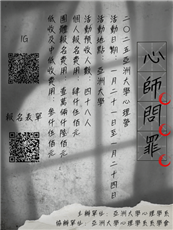 心師問罪
二〇二五亞洲大學心理營
活動日期:一月二十一日至一月二十四日
活動地點 亞洲大學
活動預收人數 四十八人
個人報名費用 肆仟伍佰元
團體報名費用 壹萬仟陸佰元
低收及中低收費用 參仟伍佰元
IG
報名表單
主辦單位 亞洲大學心理學系
協辦單位 亞洲大學心理學系系學會